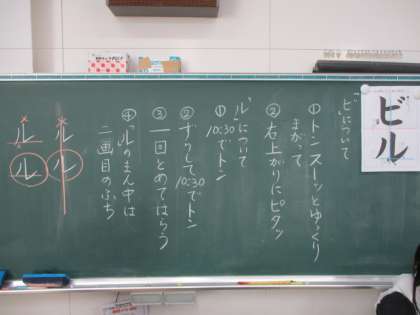 ビル
「ビ」について
① トン スーッとゆっくり
まがって
② 右上がりにピタッ
「ル」について
① 10:30でトン
② すうっして10:30でトン
③ 一回とめてはらう
④ 「ル」のまん中は
二画目のふち
ル ル
ル ル